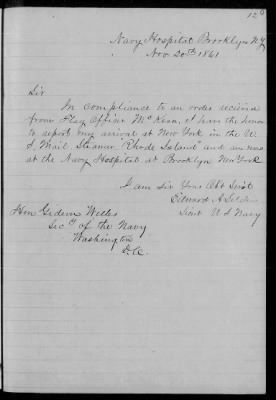 126
Navy Hospital Brooklyn N.Y.
Nov 20th 1861
Sir
In compliance to an order received
from Flag Officer McKean, I have the honor
to report my arrival at New York in the U.
S. Mail Steamer "Rhode Island" and am now
at the Navy Hospital at Brooklyn New York
I am Sir Your Obt Servt
Edward A.
Lieut U S Navy
Hon Gideon Welles
Secty of the Navy
Washington
D.C.